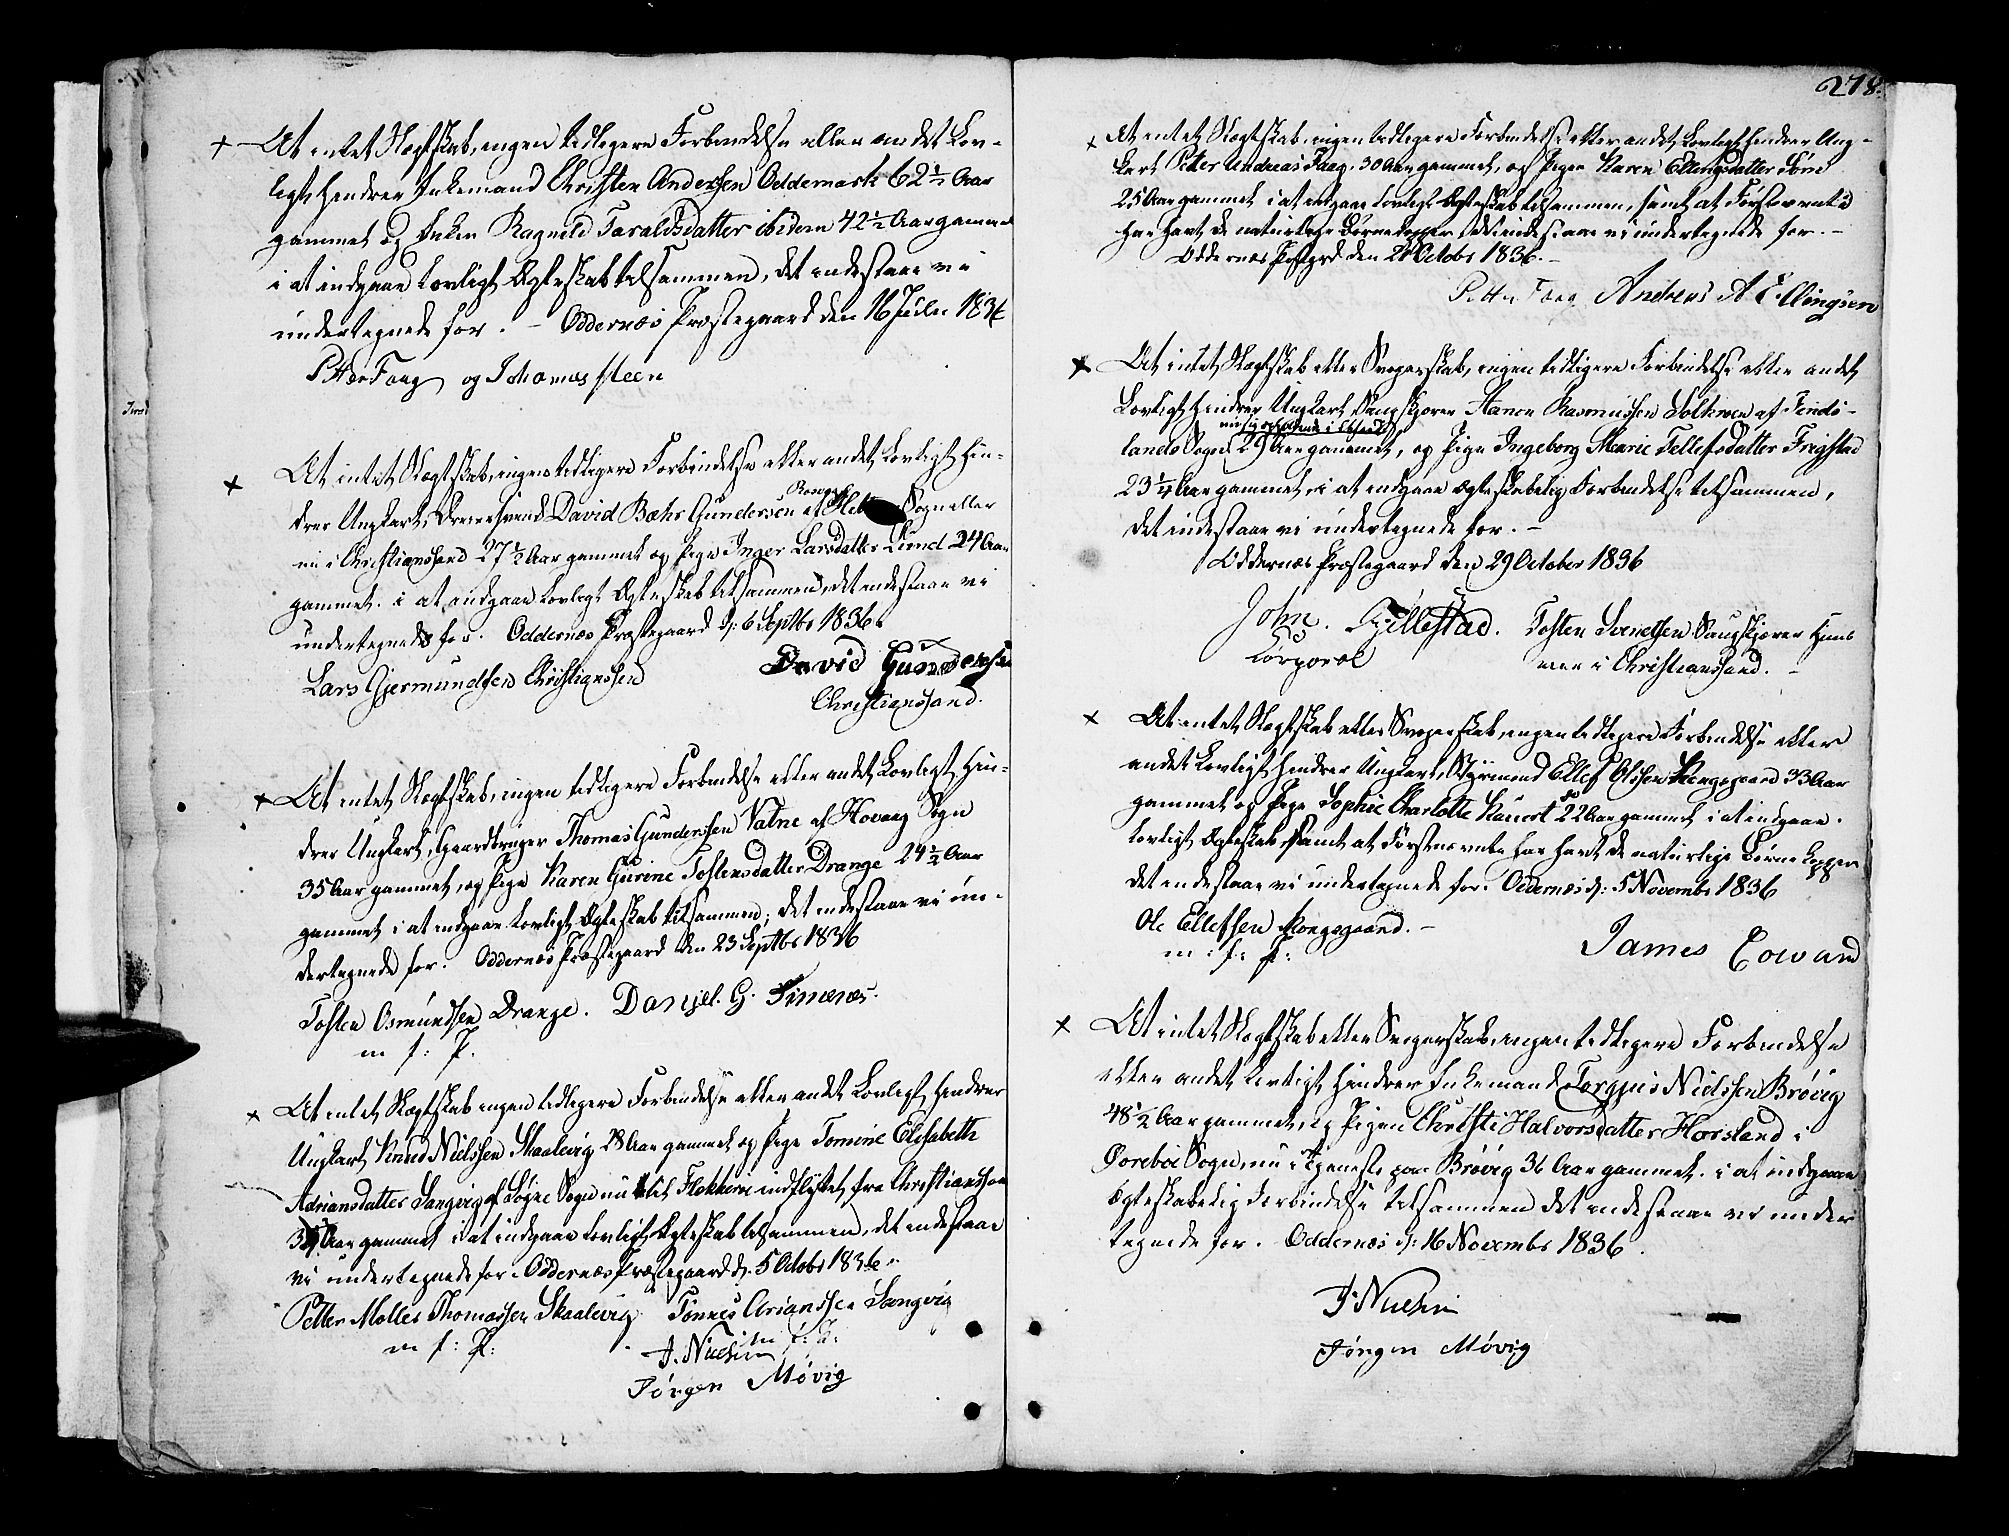 At intet Slægtskab, ingen tidligere Forbindelse eller andet Lov-
ligt hindrer Enkemand Christen Andersen Oddemark 62 1/2 Aar
gammel og Enken Ragnild Taraldsdatter ibidem 42 1/2 Aar gammel
i at indgaae lovligt Ægteskab tilsammen, det indestaae vi
undertegnede for. – Oddernæs Præstegaard den 16 Julii 1836
Petter Faag og Thomas Steen
At intet Slægtskab, ingen tidligere Forbindelse eller andet Lovligt hin-
drer Ungkarl, Dreiersvend David Bæhr Gundersen af Sogn eller
nu i Christiansand 27 1/2 Aar gammel og Pige Inger Larsdatter Lund 24 Aar
gammel i at indgaae lovligt Ægteskab tilsammen, det indestaae vi
undertegnede for. Oddernæs Præstegaard d: 6 Septbr 1836
Lars Gjermundsen Christiansen David Gundersen
Christianssand.
At intet Slægtskab, ingen tidligere Forbindelse eller andet Lovligt hin-
drer Ungkarl, Gaardbruger Thomas Gundersen Vatne af Hovaag Sogn
35 Aar gammel, og Pige Karen Gurine Tostensdatter Drange 24 1/2 Aar
gammel i at indgaae lovligt Ægteskab tilsammen; det indestaae vi un-
dertegnede for. Oddernæs Præstegaard den 23 Septbr 1836
Tosten Osmundsen Drange. Daniel. G. Timenes.
m f: P.
At intet Slægtskab ingen tidligere Forbindelse eller andet Lovligt hindrer
Ungkarl Knud Nielssen Skaalevig 28 Aar gammel og Pige Tomine Elisabeth
Adriansdatter Langvig af Søgne Sogn nu til Flekkerø indflyttet fra Christianssand
Aar gammel i at indgaae lovligt Ægteskab tilsammen, det indestaae
vi undertegnede for. Oddernæs Præstegaard d. 5 Octobr 1836
Petter Moller Thomassen Skaalevig Tønnes Arianssen Langvig
m f: P: m f: P:
J. Nielsen
Jörgen Mövig
278.
At intet Slægtskab, ingen tidligere Forbindelse eller andet Lovligt hindrer Ung-
karl Peter Andreas Faag, 30 Aar gammel, og Pigen Karen Ellingsdatter
25 Aar gammel i at indgaae lovligt Ægteskab tilsammen, samt at Førstnævnte
har havt de naturlige Børnekopper det indestaae vi undertegnede for. –
Oddernæs Præstgrd den 21 Octobr 1836. –
Petter Faag Andreas A Ellingsen
At intet Slægtskab eller Svogerskab, ingen tidligere Forbindelse eller andet
Lovligt hindrer Ungkarl, Saugskjærer Aanen Rasmussen af Finds-
lands Sogn 29 Aar gammel, og Pige Ingeborg Marie Tellefsdatter Frigstad
23 1/4 Aar gammel, i at indgaae ægteskabelig Forbindelse tilsammen,
det indestaae vi undertegnede for. –
Oddernæs Præstegaard den 29 October 1836
John. Fjellestad. Tosten Svendsen Saugskjærer Huus
Corporal mand i Christianssand. –
At intet Slægtskab eller Svogerskab, ingen tidligere Forbindelse eller
andet Lovligt hindrer Ungkarl, Styrmand Ellef Olssen Kongsgaard 33 Aar
gammel og Pige Sophie Charlotte 22 Aar gammel i at indgaae
lovligt Ægteskab, samt at Førstnævnte har havt de naturlige Børnekopper
det indestaae vi undertegnede for. Oddernæs d: 5 Novembr 1836
Ole Ellefsen Kongsgaard. –
m: f: P: James Coward
At intet Slægtskab eller Svogerskab, ingen tidligere Forbindelse
eller andet lovligt hindrer Enkemand Torgius Nielssen Brøvig
48 1/2 Aar gammel, og Pigen Christi Halvorsdatter Horsland i
Øvrebøe Sogn, nu i Tjeneste paa Brøvig 36 Aar gammel i at indgaae
ægteskabelig Forbindelse tilsammen det indestaae vi under
tegnede for. Oddernæs d: 16 Novembr 1836.
J. Nielsen
Jörgen Mövig